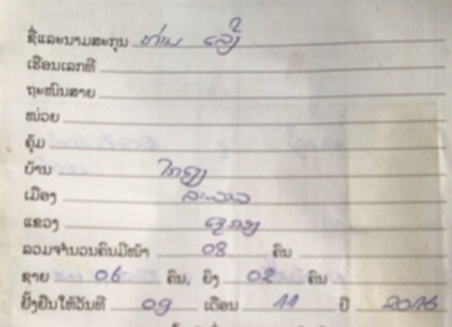 ຊື່ແລະນາມສະກຸນ ທ່ານ
ເຮືອນເລກທີ
ຖະໜົນສາຍ
ໜ່ວຍ
ຄຸ້ມ
ບ້ານ
ເມືອງ
ແຂວງ
ລວມຈຳນວນຄົນມີໜ້າ 08 ຄົນ
ຊາຍ 06 ຄົນ, ຍິງ 02 ຄົນ
ຢັ້ງຢືນໃຫ້ວັນທີ 09 ເດືອນ 11 ປີ 2016